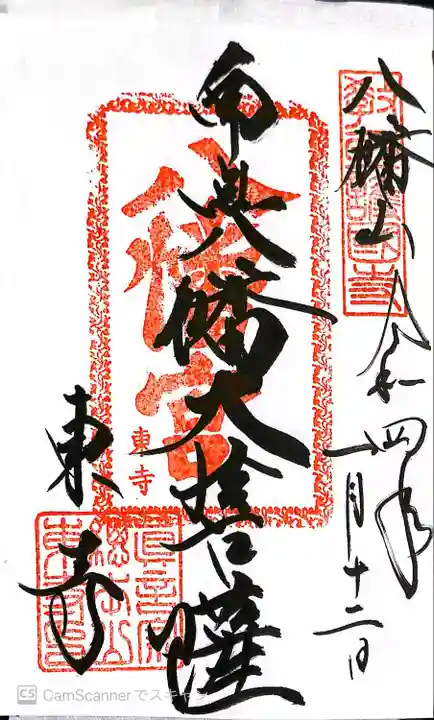 八幡山
令和四年一月十二日
南無八幡大菩薩
八幡宮
東寺
東寺
CS CamScannerでスキャン